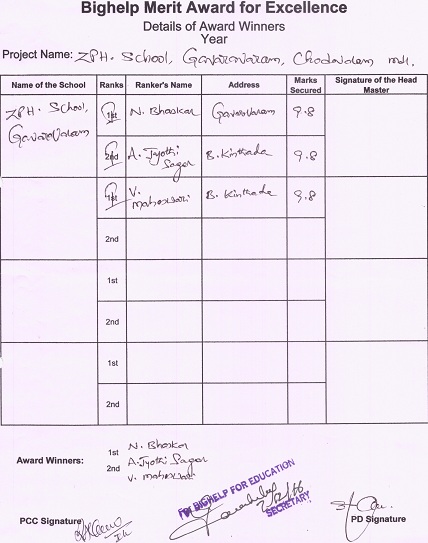 Bighelp Merit Award for Excellence
Details of Award Winners
Year
Project Name: ZPH. School, Gavaravaram, Chodavaram mdl.
Name of the School Ranks Ranker's Name Address Marks Secured Signature of the Head Master
ZPH. School, Gavaravaram 1st N. Bhaskar Gavaravaram 9.8
2nd A. Jyothi Sagar B. Kinthada 9.8
1st V. Maheswari B. Kinthada 9.8
2nd
1st
2nd
1st
2nd
Award Winners: 1st N. Bhaskar
2nd A. Jyothi Sagar
V. Maheswari
For BIGHELP FOR EDUCATION
SECRETARY
PCC Signature
PD Signature